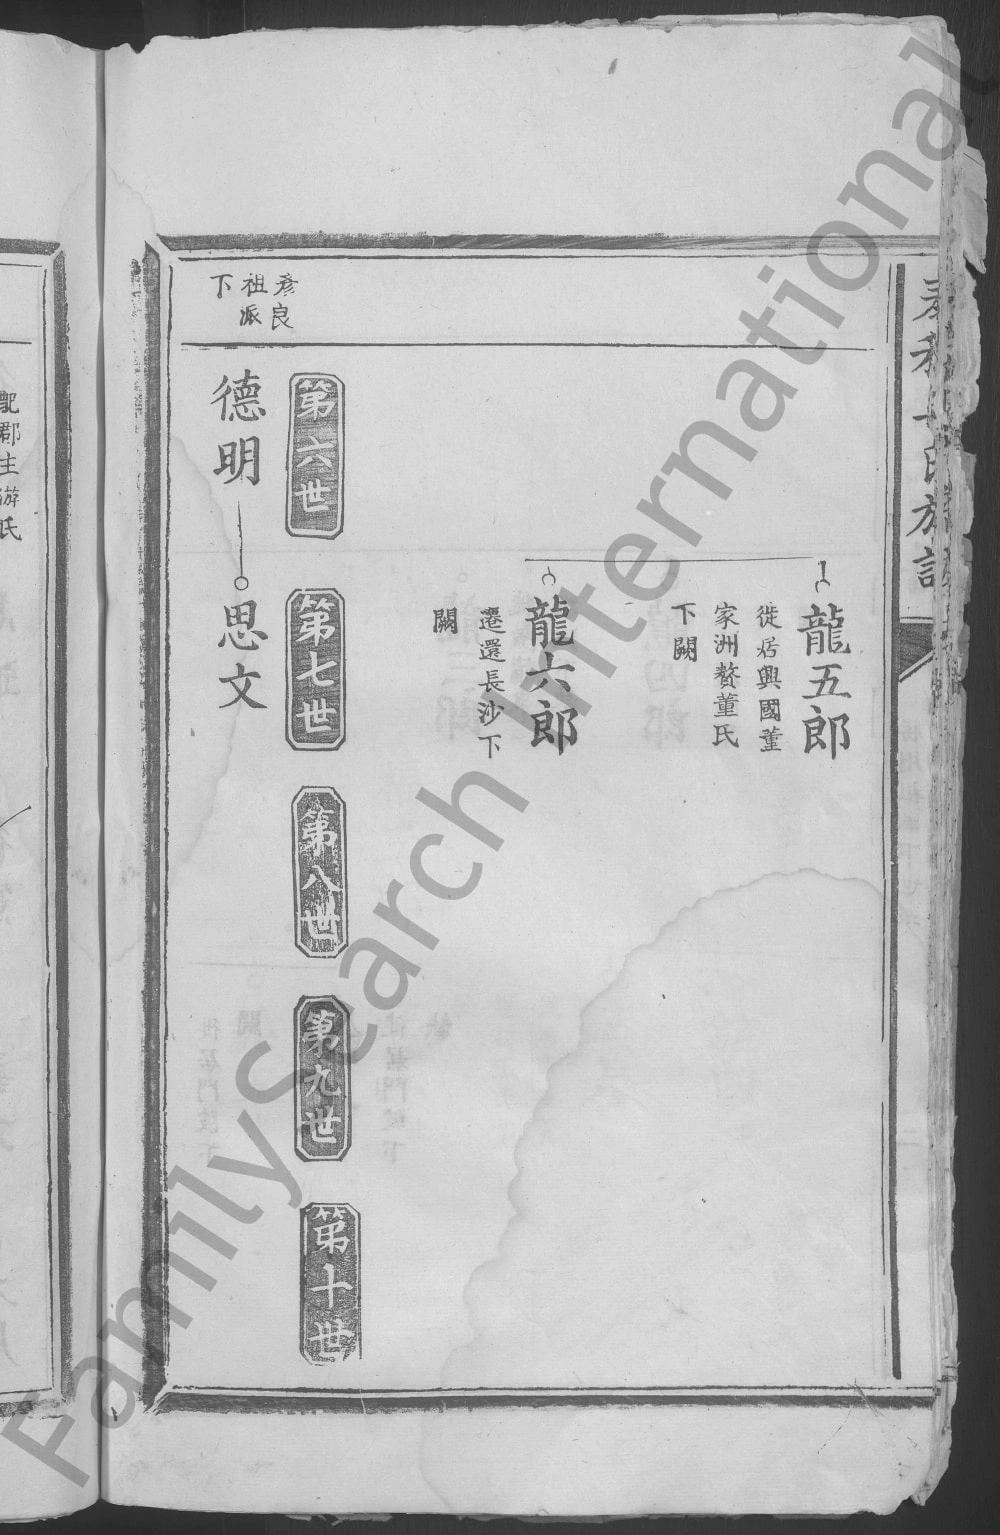 龍五郎
徙居興國董
家洲贅董氏
下闕
龍六郎
遷還長沙下
闕
彥良
祖派
下
第六世
第七世
第八世
第九世
第十世
德明
思文
配郡主游氏
FamilySearch International